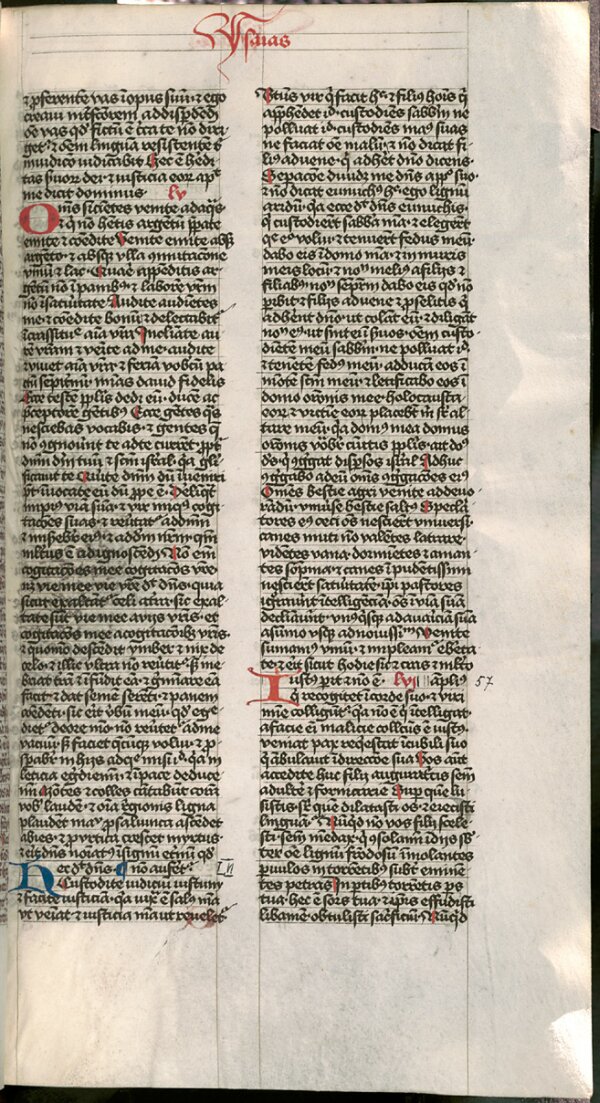 Ysaias
⁊ ꝓferente vas ī opus suū ⁊ ego
creaui īt̄fcōrem ad disꝑdēdū
ōe vas qd̄ fictū ē cōtra te nō diri
get᷑ ⁊ oēm linguā resistentē t᷑
ī iudicio iudicabis hec ē hēdi
tas ẜuor dei ⁊ iusticia eor apꝭ
me dicit dominus lv
Oms siciētes venite ad aqꝭ
⁊ q̄ nō hētis argētū ꝓpate
emite ⁊ cōedite Venite emite absꝫ
argēto ⁊ absqꝫ vlla ɔmutacōne
vinū ⁊ lac Quare appēditis ar
gētū nō ī panibꝫ ⁊ laborē vrm̄
nō ī saturitate Audite audiētes
me ⁊ cōedite bonū ⁊ delectabit᷑
ī crassitud aīa vra Inclinate au
rē vram ⁊ venite ad me audite
⁊ viuet aīa vra ⁊ feriā vobiscū pa
ctū sepitnū mīas dauid fideles
Ecce testē pplis dedi eū ducē ac
pceptorē gētibꝫ Ecce gētes qꝭ
nesciebas vocabis ⁊ gentes q̄
nō ɔgnouūt te ad te curret ꝓpt᷑
dnm̄ dm̄ tuū ⁊ scm̄ isrl̄ qa glī
ficauit te Querite dnm̄ dū īueniri
pt̄ īuocate eū dū ꝓpe ē Relīqt
impiꝰ viā suā ⁊ vir iniqꝰ cogi
tacōes suas ⁊ reutat᷑ ad dnm̄
⁊ misebit᷑ eiꝰ ⁊ ad dm̄ nrm̄ qm̄
mltus ē ad ignoscēdū Nō em̄
cogitacōes mee cogitacōes vre
neqꝫ vie mee vie vre dt̄ dn̄s quia
sicut exaltāt᷑ celi a tra sic exal
tate sūt vie mee a vijs vris et
cogitacōes mee a cogitacōibꝫ vris
⁊ quomo descēdit ymber ⁊ nix de
celo ⁊ illuc vltra nō reutit᷑ ẜ īne
briat trā ⁊ īfūdit eā ⁊ gmīare eā
facit ⁊ dat semē serēti ⁊ panem
cōedēti sic erit vbū meū qd̄ eg
diet᷑ de ore mō nō reutet᷑ ad me
vacuū ẜ faciet qcūqꝫ volui ⁊ ꝓ
spabit᷑ in hijs ad qe misi id qa ī
leticia egrediemī ⁊ ī pace deduce
mī mōtes ⁊ colles cātabūt corā
vob laudē ⁊ oīa regionis ligna
plaudēt manꝰ ꝓ saliunca ascēdet
abies ⁊ ꝓ vrtica crescet myrtus
⁊ erit dn̄s noīatꝰ ī signū etnū qd̄
nō auferet᷑
Hec dt̄ dn̄s LVI
Custodite iudiciū
⁊ facite iusticiā qa iuxta ē salꝰ mea
vt veniat ⁊ iusticia mea vt reuelet᷑
Btūs vir q̄ facit hᵉ ⁊ filiꝰ hoīs q̄
apphēdet id custodiēs sabbm̄ ne
polluat id custodiēs manꝰ suas
ne faciat oē malū ⁊ nō dicat fi
liꝰ aduene q̄ adhēt dn̄o dicens
Sepacōe diuidet me dn̄s a pplo suo
⁊ nō dicat eunuchꝰ ecce ego lignū
aridū qa ecce dt̄ dn̄s eunuchis
q̄ custodierīt sabbata mea ⁊ elegerīt
que ego volui ⁊ tenuerīt fedus meū
dabo eis ī domo mea ⁊ in muris
meis locū ⁊ nomē meliꝰ a filijs ⁊
filiabꝫ nomē sepitnū dabo eis qd̄ nō
pibit ⁊ filijs aduene ꝓselitis q̄
adhērēt dn̄o vt colāt eū ⁊ diligāt
nomē eiꝰ vt sint ei ī ẜuos oēm custo
diētē meū sabbm̄ ne polluat id
⁊ tenētē fedꝰ meū adducā eos ī
mōtē scm̄ meū ⁊ letificabo eos ī
domo orōnis mee holocausta
eor ⁊ victīe eor placebūt m̄ sup al
tare meū qa domꝰ mea domus
orōnis vocabit᷑ cūctis pplis ait dn̄s
dꝭ q̄ ɔgregat disꝑsos isrl̄ Adhuc
ɔgregabo ad eū ōms ɔgregatos eiꝰ
Omēs bestie agri venite ad deuo
randū vniuse bestie saltꝰ Specla
tores eiꝰ ceci oēs nesciert vniuersi
canes muti nō valētes latrare
vidētes vana dormiētes ⁊ aman
tes sopnia ⁊ canes īpudētissimi
nesciert saturitatē ipi pastores
ignorāt ītelligēciā oēs ī viā suā
declīauert vnꝰqisqꝫ ad auariciā suā
a sūmo vsqꝫ ad nouissimū Venite
sumamꝰ vinū ⁊ īpleamꝰ ebrieta
te ⁊ erit sicut hodie sic ⁊ cras ⁊ mlto
Iustꝰ pit ⁊ nō ē lvii ampliꝰ 57
q̄ recogitet ī corde suo ⁊ viri
mīe colligūt᷑ qa nō ē q̄ ītelligat
a facie em̄ malicie collectꝰ ē iustꝰ
veniat pax reqescat ī cubili suo
q̄ ābulauit ī direccōe sua Vos aūt
accedite huc filij auguratricis semē
adultere ⁊ fornicarie Sup que lu
sistis sup que dilatastis os ⁊ eiecistis
linguā Nūqd nō vos filij scele
sti semē mendax q̄ ɔsolamī ī dijs sbꝰ
ter oē lignū frōdosū īmolantes
puulos in torrētibꝫ subt᷑ eminē
tes petras In ptibꝫ torrētis ps
tua hec ē sors tua ⁊ ipis effudisti
libamē obtulisti sacrificiū Nūqd